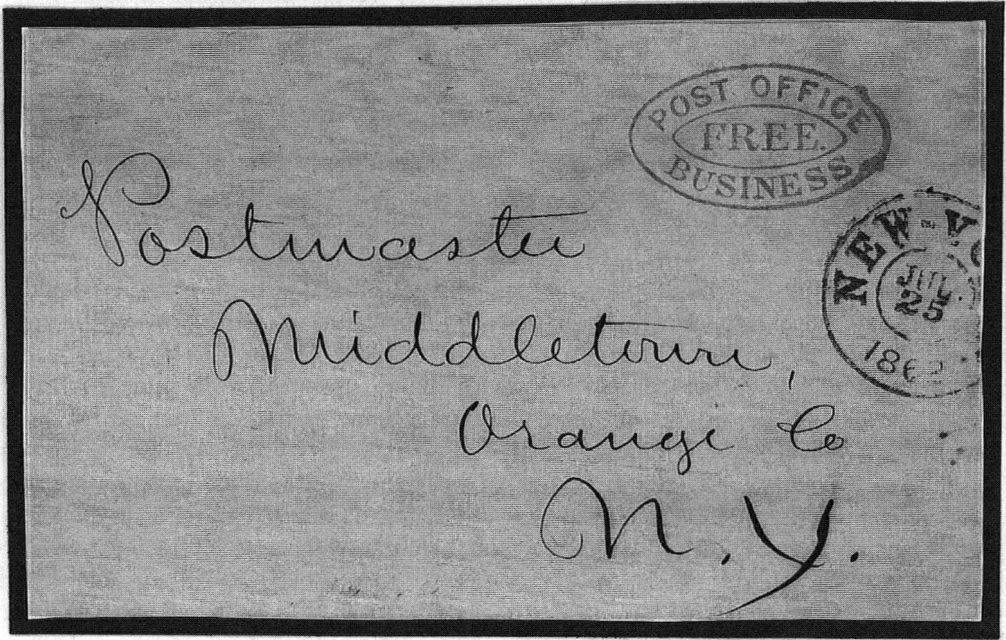 POST OFFICE
FREE.
BUSINESS
NEW-YO
JUL
25
186
Postmaster
Middletown,
Orange Co
N.Y.